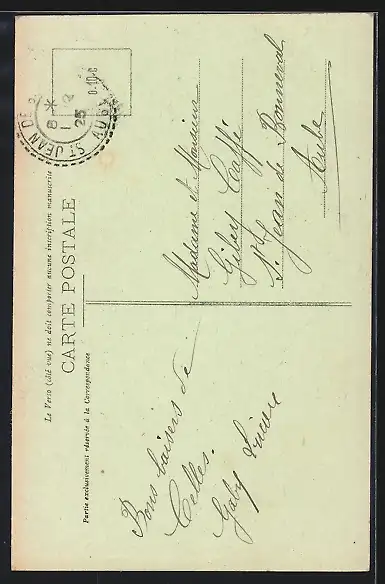 Le Verso (côté vue) ne doit comporter aucune inscription manuscrite
CARTE POSTALE
Partie exclusivement réservée à la Correspondance
Bons baisers de
Celles.
Gaby
ST JEAN DE
AUBE
8 * 2
1
25
0-10 C
Madame et Monsieur
Caffé
St Jean de Bonneval
Aube